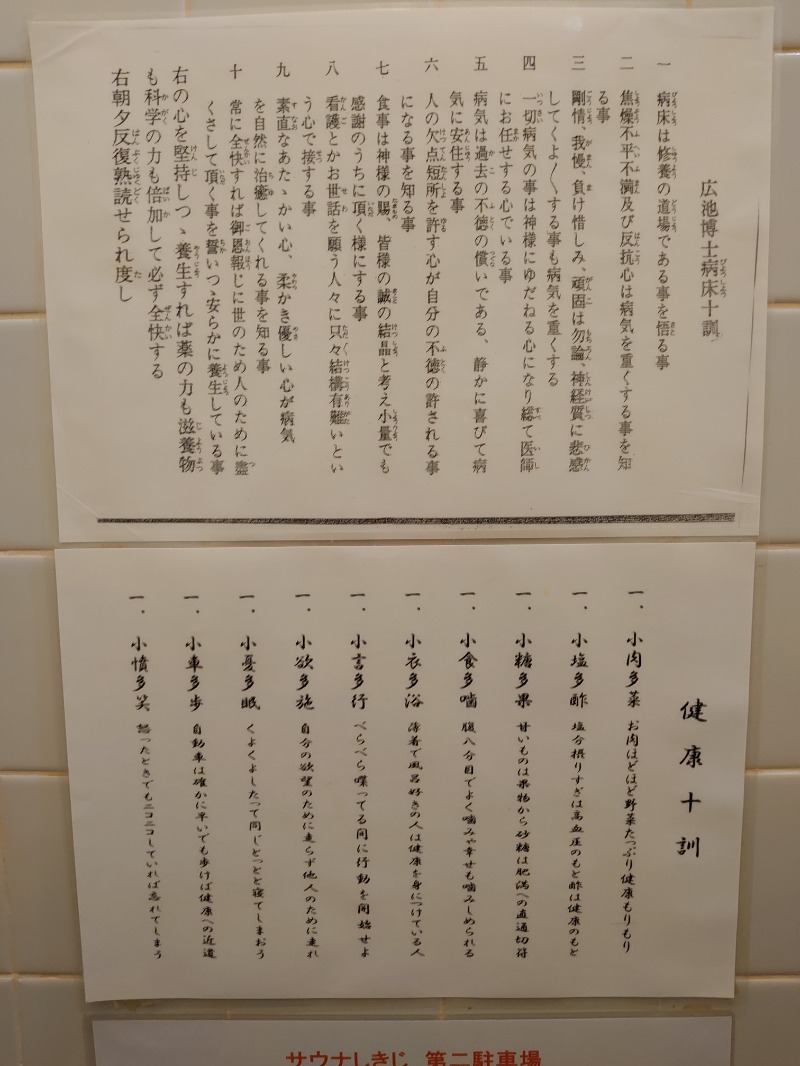 広池博士病床十訓
一 病床は修養の道場である事を悟る事
二 焦燥不平不満及び反抗心は病気を重くする事を知
る事
三 剛情、我慢、負け惜しみ、頑固は勿論、神経質に悲感
してくよ〱する事も病気を重くする
四 一切病気の事は神様にゆだねる心になり総て医師
にお任せする心でいる事
五 病気は過去の不徳の償いである、静かに喜びて病
気に安住する事
六 人の欠点短所を許す心が自分の不徳の許される事
になる事を知る事
七 食事は神様の賜、皆様の誠の結晶と考え小量でも
感謝のうちに頂く様にする事
八 看護とかお世話を願う人々に只々結構有難いとい
う心で接する事
九 素直なあたゝかい心、柔かき優しい心が病気
を自然に治癒してくれる事を知る事
十 常に全快すれば御恩報じに世のため人のために盡
くさして頂く事を誓いつゝ安らかに養生している事
右の心を堅持しつゝ養生すれば薬の力も滋養物
も科学の力も倍加して必ず全快する
右朝夕反復熟読せられ度し
健康十訓
一．小肉多菜 お肉ほどほど野菜たっぷり健康もりもり
一．小塩多酢 塩分摂りすぎは高血圧のもと酢は健康のもと
一．小糖多果 甘いものは果物から砂糖は肥満への直通切符
一．小食多噛 腹八分目でよく噛みゃ幸せも噛みしめられる
一．小衣多浴 薄着で風呂好きの人は健康を身につけている人
一．小言多行 べらべら喋ってる間に行動を開始せよ
一．小欲多施 自分の欲望のために走らず他人のために走れ
一．小憂多眠 くよくよしたって同じとっとと寝てしまおう
一．小車多歩 自動車は確かに早いでも歩けば健康への近道
一．小憤多笑 怒ったときでもニコニコしていれば忘れてしまう
サウナしきじ 第二駐車場